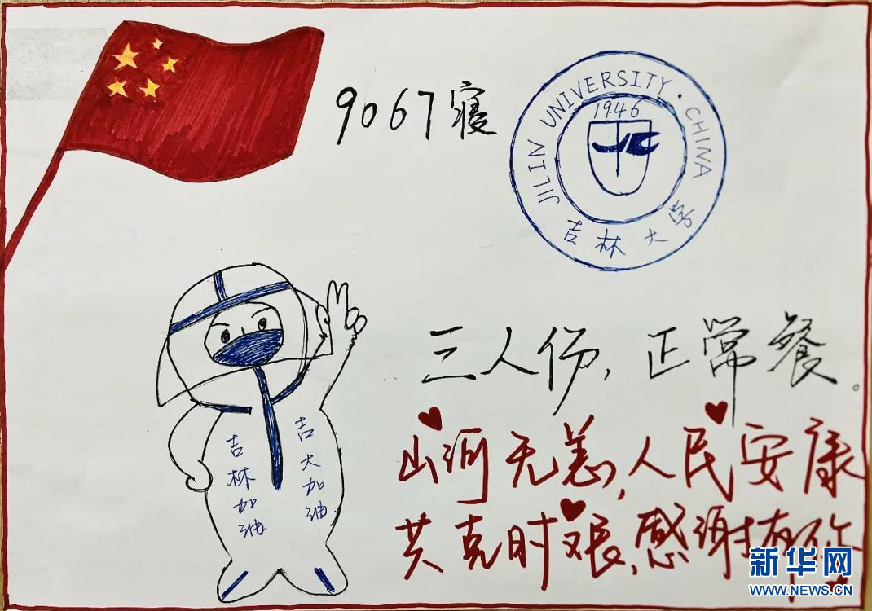 9067寝
JILIN UNIVERSITY · CHINA
1946
吉林大学
三人份,正常餐。
吉林加油
吉大加油
山河无恙,人民安康
共克时艰,感谢有你
新华网
WWW.NEWS.CN